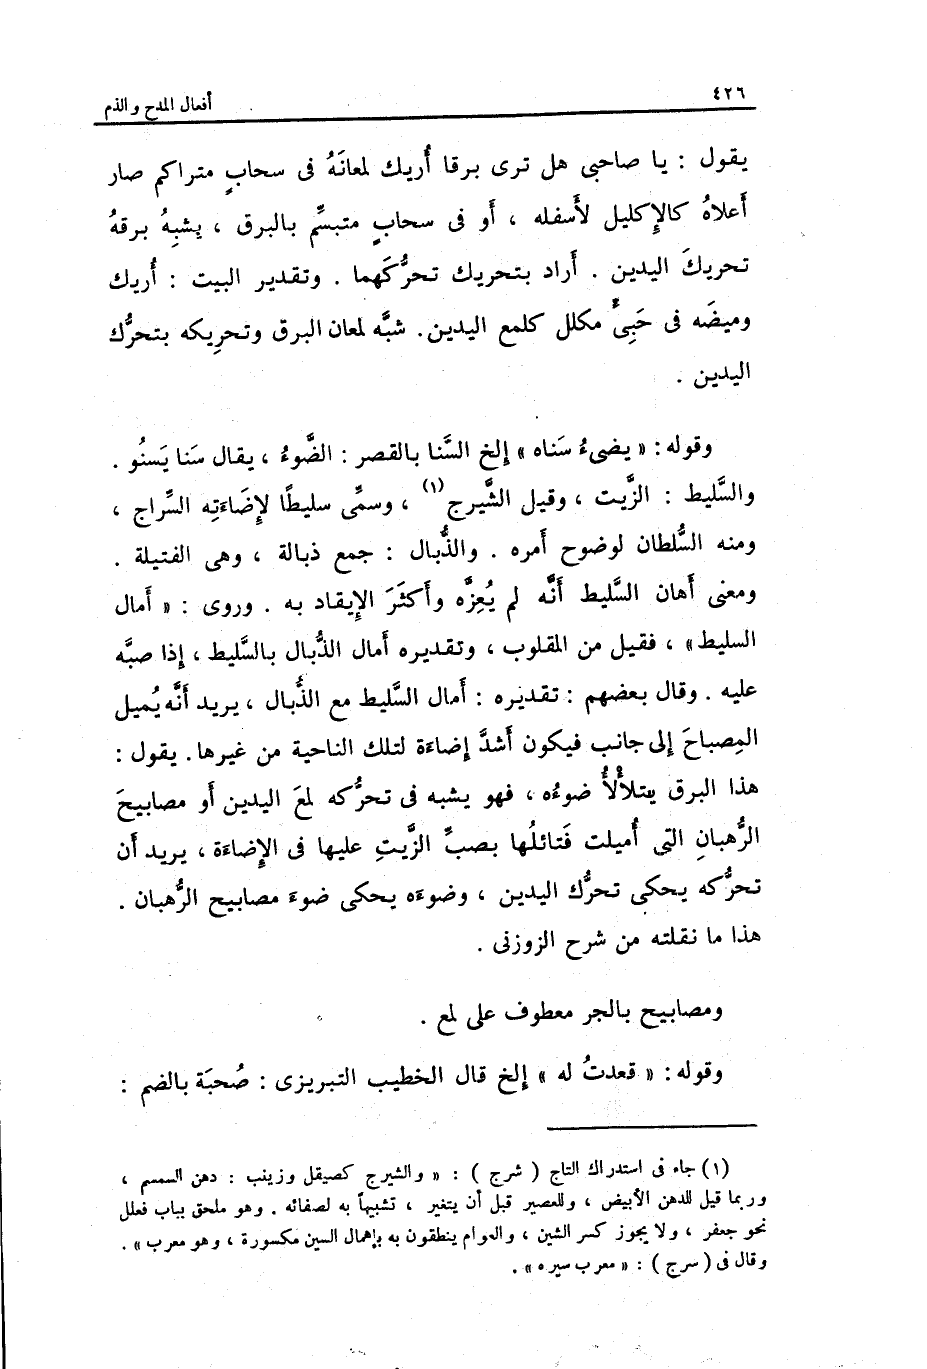 ٤٢٦
أفعال المدح والذم
يقول : يا صاحبى هل ترى برقا أُريك لمعانَهُ فى سحابٍ متراكم صار
أعلاهُ كالإكليل لأسفله ، أو فى سحابٍ متبسِّم بالبرق ، يشبِهُ برقهُ
تحريكَ اليدين . أراد بتحريك تحرُّكَهما . وتقدير البيت : أُريك
وميضَه فى حَبِىٍّ مكلل كلمع اليدين. شبَّه لمعان البرق وتحرِيكه بتحرُّك
اليدين .
وقوله: « يضىءُ سَناه » إلخ السَّنا بالقصر : الضَّوءُ ، يقال سَنا يَسنُو .
والسَّليط : الزَّيت ، وقيل الشَّيرج (١) ، وسمِّى سليطًا لإِضَاءَتِه السِّراج ،
ومنه السُّلطان لوضوح أمره . والذُّبال : جمع ذبالة ، وهى الفتيلة .
ومعنى أهان السَّليط أنَّه لم يُعِزَّه وأكثَرَ الإيقاد به . وروى : « أمال
السليط» ، فقيل من المقلوب ، وتقديره أمال الذُّبال بالسَّليط ، إذا صبَّه
عليه . وقال بعضهم : تقديره : أمال السَّليط مع الذُّبال ، يريد أنَّه يُميل
المِصباحَ إلى جانب فيكون أشدَّ إضاءَة لتلك الناحية من غيرها. يقول :
هذا البرق يتلأْلأُ ضوءُه ، فهو يشبه فى تحرُّكه لمعَ اليدين أو مصابيحَ
الرُّهبانِ التى أُميلت فَتائلُها بصبِّ الزَّيتِ عليها فى الإضاءَة ، يريد أن
تحرُّكه يحكى تحرُّك اليدين ، وضوءَه يحكى ضوءَ مصابيح الرُّهبان .
هذا ما نقلته من شرح الزوزنى .
ومصابيح بالجر معطوف على لمع .
وقوله: « قعدتُ له » إلخ قال الخطيب التبريزى : صُحبَة بالضم :
(١) جاء فى استدراك التاج ( شرج ) : « والشيرج كصيقل وزينب : دهن السمسم ،
وربما قيل للدهن الأبيض ، وللعصير قبل أن يتغير ، تشبيهاً به لصفائه . وهو ملحق بباب فعلل
نحو جعفر ، ولا يجوز كسر الشين ، والعوام ينطقون به بإهمال السين مكسورة ، وهو معرب » .
وقال فى ( سرج ) : « معرب سيره » .